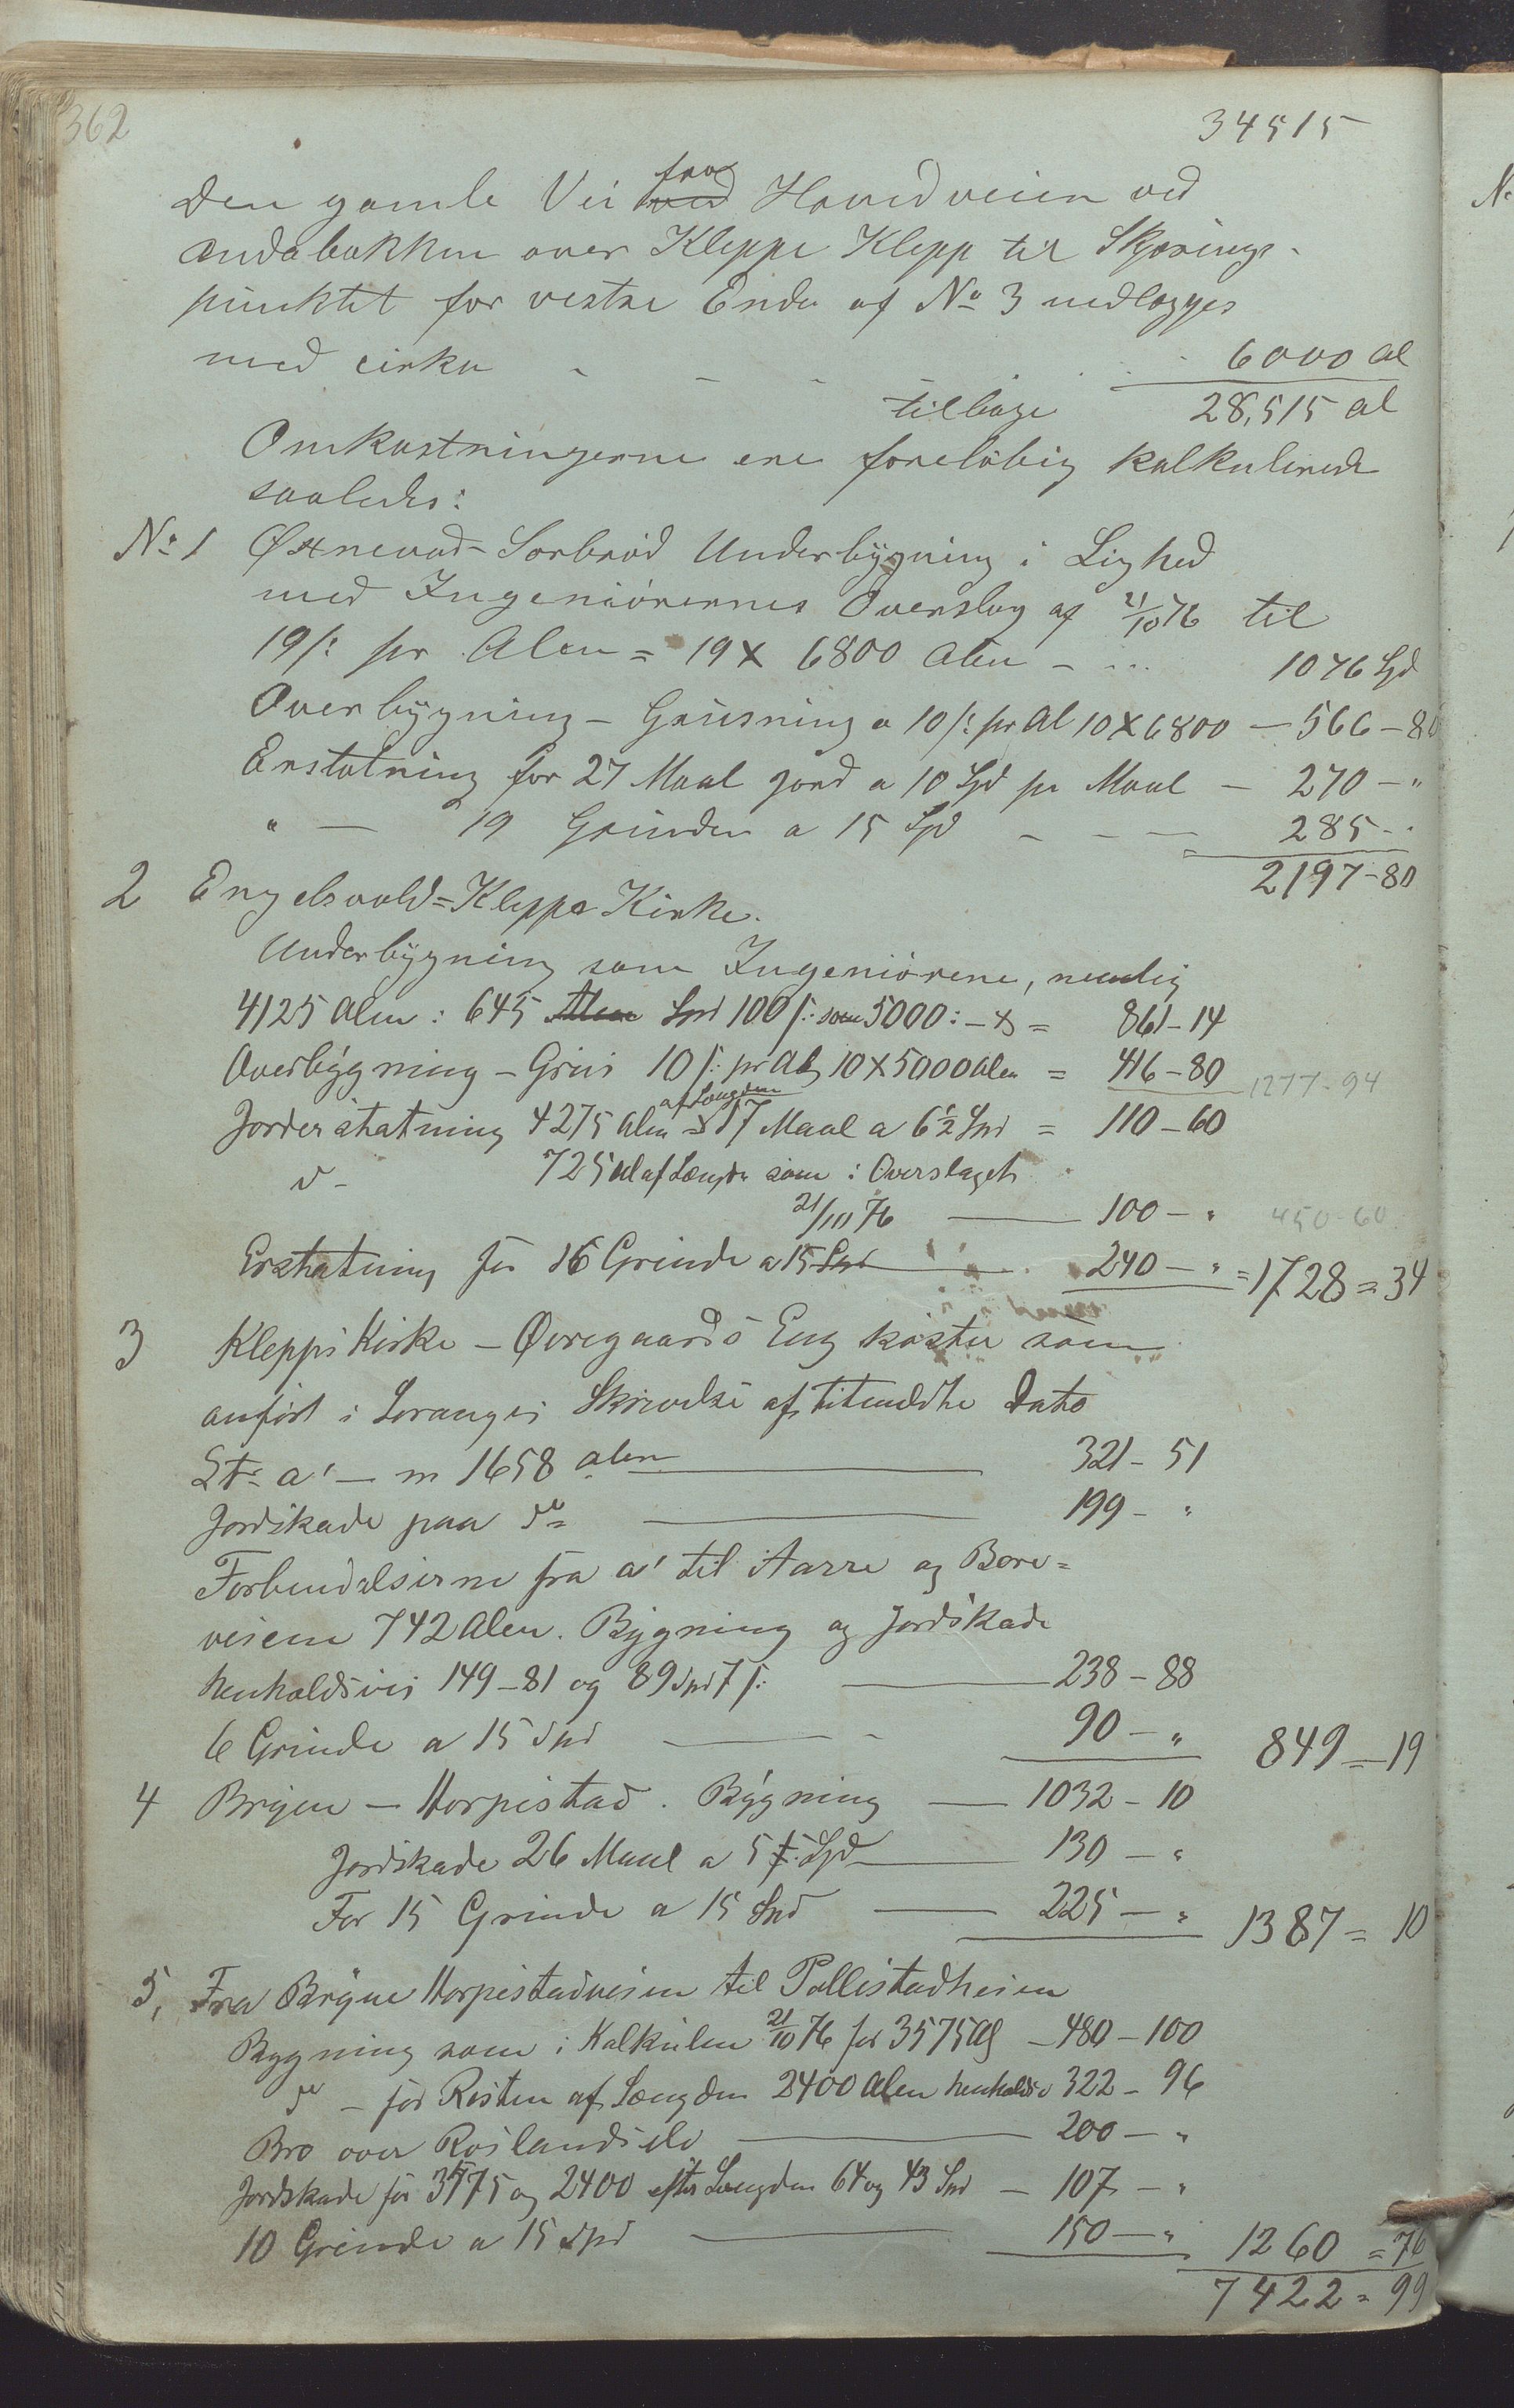 362
34515
Den gamle Vei ved fra Hovedveien ved
Andabakken over Kleppe Klepp til Skjærings-
punktet for vestre Ende af No 3 nedlægges
med cirka - - - 6000 Al
tilbage 28,515 Al
Omkostningerne ere foreløbig kalkulerede
saaledes:
No 1 Øxnevad-Sorbrød Underbygning i Lighed
med Ingeniørernes Overslag af 21/10 76 til
19 /: pr Alen = 19 X 6800 Alen - ... 1076 Spd
Overbygning - Grusning a 10 /: pr Al 10 X 6800 - 566 - 80
Erstatning for 27 Maal Jord a 10 Spd pr Maal - 270 - "
" - 19 Grinder a 15 Spd - - - 285 - "
2197 - 80
2 Engelsvold = Kleppe Kirke.
Underbygning som Ingeniørene, nemlig
4125 Alen : 645 Alen Spd 100 /: som 5000 : - x = 861 - 14
Overbygning - Grus 10 /: pr Al, 10 X 5000 Alen = 416 - 80
1277 - 94
Jorderstatning 4275 Alen af Længden 17 Maal a 6 1/2 Spd = 110 - 60
do - 725 Al af Længden som i Overslaget
21/10 76 — 100 - " 450 - 60
Erstatning for 16 Grinde a 15 Spd — 240 - " = 1728 = 34
3 Klepps Kirke - Øvregaards Eng koster som
anført i Loranges Skrivelse af titnævdte Dato
Ltr a' - m 1658 alen — 321 - 51
Jordskade paa do — 199 - "
Forbindelserne fra a' til Aarre og Bore =
veiene 742 Alen. Bygning og Jordskade
henholdsvis 149 - 81 og 89 Spd 7 /: — 238 - 88
6 Grinde a 15 Spd — 90 - " 849 - 19
4 Bryne - Horpestad. Bygning — 1032 - 10
Jordskade 26 Maal a 5 /: Spd — 130 - "
For 15 Grinde a 15 Spd — 225 - " 1387 = 10
5, Fra Bryne Horpestadveien til Pollestadheien
Bygning som i Kalkülen 21/10 76 for 3575 Al - 480 - 100
do - for Resten af Længden 2400 Alen henholdsv 322 - 96
Bro over Roslandselv — 200 - "
Jordskade for 3575 og 2400 efter Længden 64 og 43 Spd - 107 - "
10 Grinde a 15 Spd — 150 - " 1260 = 76
7422 = 99